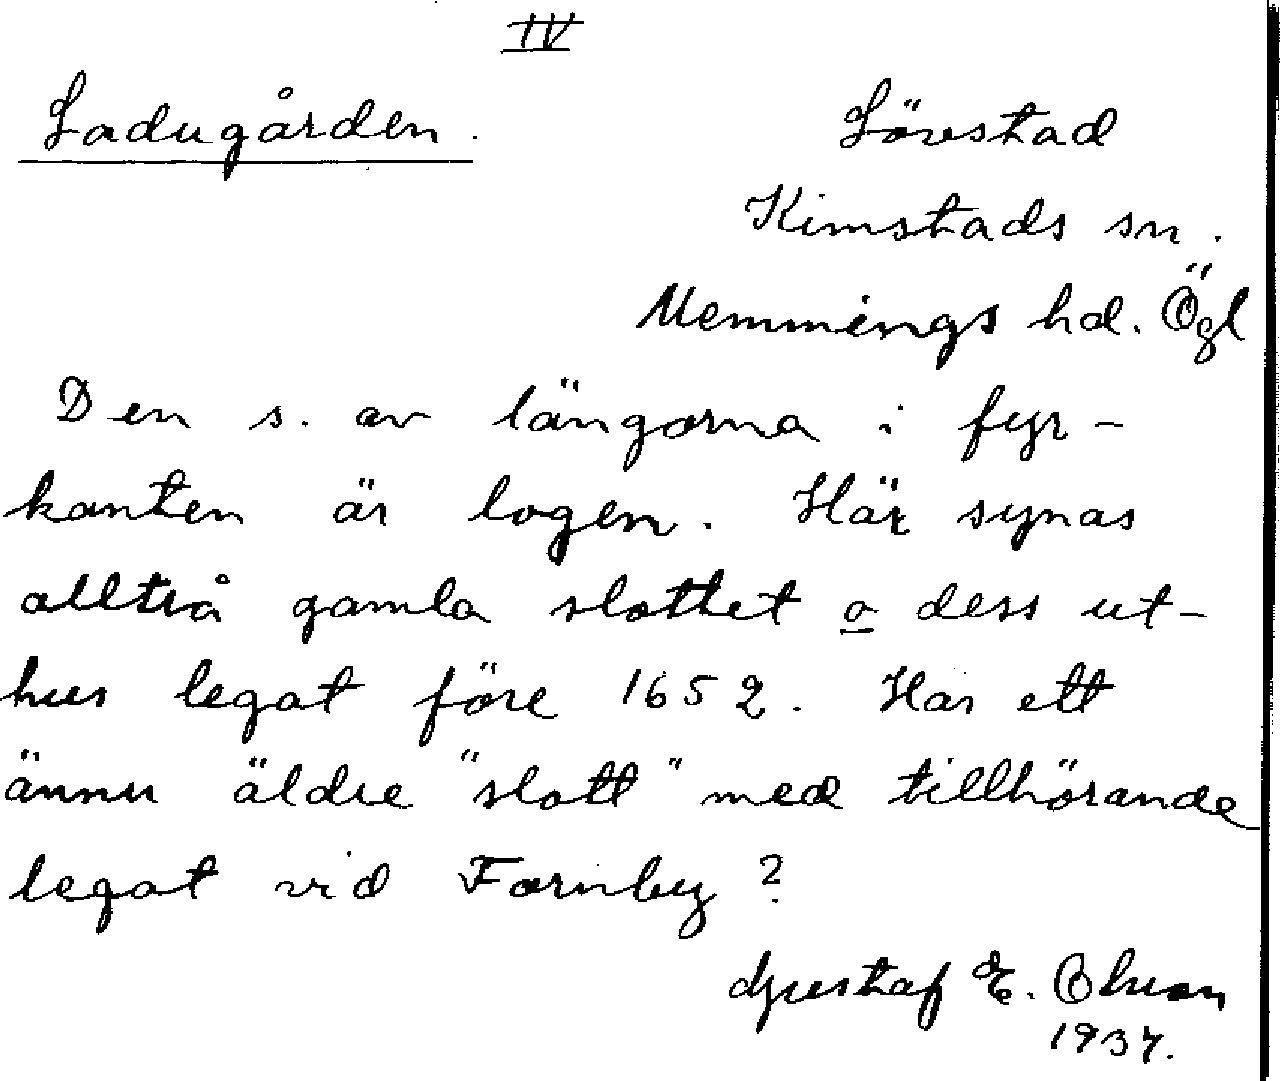 IV
Ladugården.
Lövstad
Kimstads sn.
Memmings hd. Ögl
Den s. av längorna i fyr-
kanten är logen. Här synas
alltså gamla slottet o dess ut-
hus legat före 1652. Har ett
ännu äldre "slott" med tillhörande
legat vid Fornby?
Gustaf E.
1937.